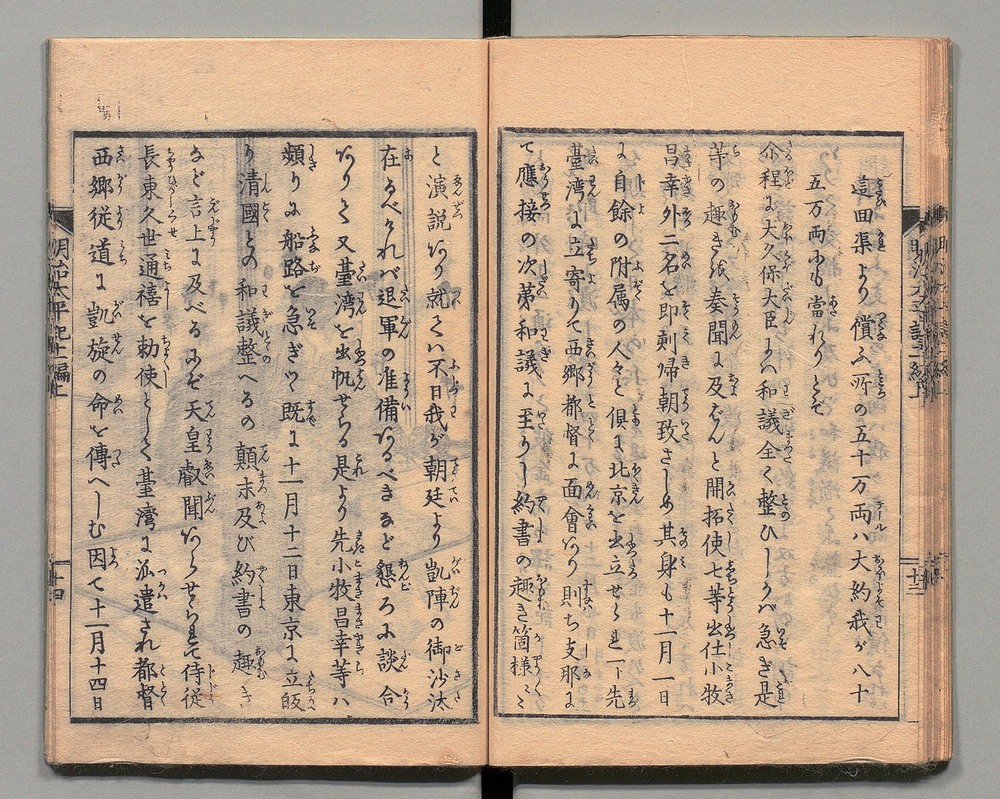 違回渠より償ふ所の五十万両ハ大約我が八十
五万両にも當れりとぞ
余程に大久保大臣にハ和議全く整ひしかバ急ぎ是
等の趣きを奏聞に及ばんと開拓使七等出仕小牧
昌幸外二名を即刻帰朝致さしめ其身も十一月一日
に自餘の附属の人々と倶に北京を出立せられ一ト先
臺湾に立寄りて西郷都督に面會あり則ち支那に
て應接の次第和議に至りし約書の趣き箇様々々
と演説あり就てハ不日我が朝廷より凱陣の御沙汰
在るべけれバ退軍の准備あるべきなど懇ろに談合
ありて又臺湾を出帆せらる是より先小牧昌幸等ハ
頻りに船路を急ぎつ既に十一月十二日東京に立皈
り清國との和議整へるの顛末及び約書の趣き
など言上に及べるにぞ天皇叡聞あらせられて侍従
長東久世通禧を勅使として臺湾に派遣され都督
西郷従道に凱旋の命を傳へしむ因て十一月十四日
明治太平記十二編上
十四